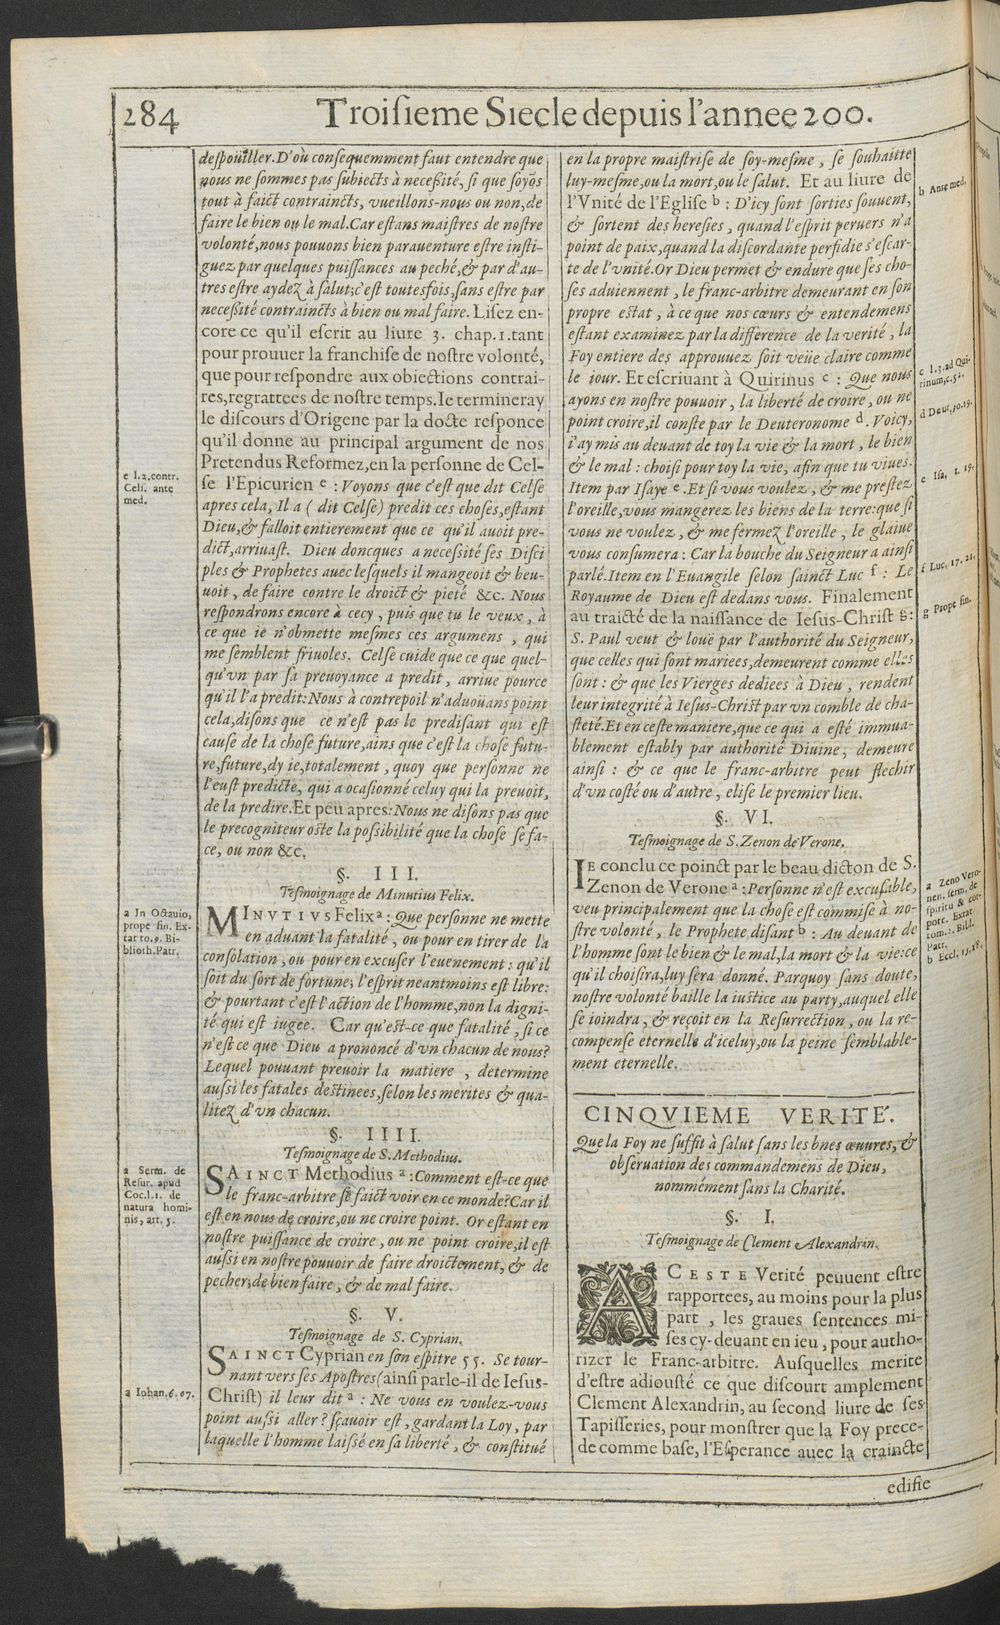 284
Troiſieme Siecle depuis l'annee 200.
deſpoüiller. D'où conſequemment faut entendre que
nous ne ſommes pas ſubiects à neceßité, ſi que ſoyõs
tout à faict contraincts, vueillons-nous ou non, de
faire le bien ou le mal. Car eſtans maiſtres de noſtre
volonté, nous pouuons bien parauenture eſtre inſti-
guez par quelques puiſſances au peché, & par d'au-
tres eſtre aydez à ſalut; c'eſt toutesfois, ſans eſtre par
neceßité contraincts à bien ou mal faire. Liſez en-
core ce qu'il eſcrit au liure 3. chap. 1. tant
pour prouuer la franchiſe de noſtre volonté,
que pour reſpondre aux obiections contrai-
res, regrattees de noſtre temps. Ie termineray
le diſcours d'Origene par la docte reſponce
qu'il donne au principal argument de nos
Pretendus Reformez, en la perſonne de Cel-
ſe l'Epicurien e : Voyons que c'eſt que dit Celſe
apres cela, Il a ( dit Celſe) predit ces choſes, eſtant
Dieu, & falloit entierement que ce qu'il auoit pre-
dict, arriuaſt. Dieu doncques a neceßité ſes Diſci
ples & Prophetes auec leſquels il mangeoit & beu-
uoit, de faire contre le droict & pieté &c. Nous
reſpondrons encore à cecy, puis que tu le veux, à
ce que ie n'obmette meſmes ces argumens, qui
me ſemblent friuoles. Celſe cuide que ce que quel-
qu'vn par ſa preuoyance a predit, arriue pource
qu'il l'a predit: Nous à contrepoil n'aduoüans point
cela, diſons que ce n'eſt pas le prediſant qui eſt
cauſe de la choſe future, ains que c'eſt la choſe futu-
re, future, dy ie, totalement, quoy que perſonne ne
l'euſt predicte, qui a ocaſionné celuy qui la preuoit,
de la predire. Et peu apres: Nous ne diſons pas que
le precogniteur oſte la poßibilité que la choſe ſe fa-
ce, ou non &c.
§. III.
Teſmoignage de Minutius Felix.
MINVTIVS Felix a : Que perſonne ne mette
en aduant la fatalité, ou pour en tirer de la
conſolation, ou pour en excuſer l'euenement : qu'il
ſoit du ſort de fortune, l'eſprit neantmoins eſt libre:
& pourtant c'eſt l'action de l'homme, non la digni-
té qui eſt iugee. Car qu'eſt-ce que fatalité, ſi ce
n'eſt ce que Dieu a prononcé d'vn chacun de nous?
Lequel pouuant preuoir la matiere, determine
außi les fatales deſtinees, ſelon les merites & qua-
litez d'vn chacun.
§. IIII.
Teſmoignage de S. Methodius.
SAINCT Methodius a : Comment eſt-ce que
le franc-arbitre ſe faict voir en ce monde? Car il
eſt en nous de croire, ou ne croire point. Or eſtant en
noſtre puiſſance de croire, ou ne point croire, il eſt
außi en noſtre pouuoir de faire droictement, & de
pecher, de bien faire, & de mal faire.
§. V.
Teſmoignage de S. Cyprian.
SAINCT Cyprian en ſon eſpitre 55. Se tour-
nant vers ſes Apoſtres (ainſi parle-il de Ieſus-
Chriſt) il leur dit a : Ne vous en voulez-vous
point außi aller? ſçauoir eſt, gardant la Loy, par
laquelle l'homme laißé en ſa liberté, & conſtitué
e l.2. contr.
Celſ. ante
med.
a In Octauio,
prope fin. Ex-
tat to.9. Bi-
blioth. Patr.
a Serm. de
Reſur. apud
Coc. l.1. de
natura homi-
nis, art. 5.
a Iohan. 6. 67.
en la propre maiſtriſe de ſoy-meſme, ſe ſouhaitte
luy-meſme, ou la mort, ou le ſalut. Et au liure de
l'Vnité de l'Egliſe b : D'icy ſont ſorties ſouuent,
& ſortent des hereſies, quand l'eſprit peruers n'a
point de paix, quand la diſcordante perfidie s'eſcar-
te de l'vnité. Or Dieu permet & endure que ſes cho-
ſes aduiennent, le franc-arbitre demeurant en ſon
propre eſtat, à ce que nos cœurs & entendemens
eſtant examinez par la difference de la verité, la
Foy entiere des approuuez ſoit veüe claire comme
le iour. Et eſcriuant à Quirinus c : Que nous
ayons en noſtre pouuoir, la liberté de croire, ou ne
point croire, il conſte par le Deuteronome d. Voicy,
i'ay mis au deuant de toy la vie & la mort, le bien
& le mal : choiſi pour toy la vie, afin que tu viues.
Item par Iſaye e. Et ſi vous voulez, & me preſtez
l'oreille, vous mangerez les biens de la terre: que ſi
vous ne voulez, & me fermez l'oreille, le glaiue
vous conſumera : Car la bouche du Seigneur a ainſi
parlé. Item en l'Euangile ſelon ſainct Luc f : Le
Royaume de Dieu eſt dedans vous. Finalement
au traicté de la naiſſance de Ieſus-Chriſt g :
S. Paul veut & louë par l'authorité du Seigneur,
que celles qui ſont mariees, demeurent comme elles
ſont : & que les Vierges dediees à Dieu, rendent
leur integrité à Ieſus-Chriſt par vn comble de cha-
ſteté. Et en ceſte maniere, que ce qui a eſté immua-
blement eſtably par authorité Diuine, demeure
ainſi : & ce que le franc-arbitre peut flechir
d'vn coſté ou d'autre, eliſe le premier lieu.
§. VI.
Teſmoignage de S. Zenon de Verone.
IE conclu ce poinct par le beau dicton de S.
Zenon de Verone a : Perſonne n'eſt excuſable,
veu principalement que la choſe eſt commiſe à no-
ſtre volonté, le Prophete diſant b : Au deuant de
l'homme ſont le bien & le mal, la mort & la vie: ce
qu'il choiſira, luy ſera donné. Parquoy ſans doute,
noſtre volonté baille la iuſtice au party, auquel elle
ſe ioindra, & reçoit en la Reſurrection, ou la re-
compenſe eternelle d'iceluy, ou la peine ſemblable-
ment eternelle.
CINQVIEME VERITÉ.
Que la Foy ne ſuffit à ſalut ſans les bnes œuures, &
obſeruation des commandemens de Dieu,
nommément ſans la Charité.
§. I.
Teſmoignage de Clement Alexandrin.
A CESTE Verité peuuent eſtre
rapportees, au moins pour la plus
part, les graues ſentences mi-
ſes cy-deuant en ieu, pour autho-
rizer le Franc-arbitre. Auſquelles merite
d'eſtre adiouſté ce que diſcourt amplement
Clement Alexandrin, au ſecond liure de ſes
Tapiſſeries, pour monſtrer que la Foy prece-
de comme baſe, l'Eſperance auec la craincte
edifie
b Ante med.
c l.3. ad Qui-
rinum, c. 52.
d Deut. 30. 19.
e Iſa. 1. 19.
f Luc. 17. 21.
g Prope fin.
a Zeno Vero-
nen. ſerm. de
ſpiritu & cor-
pore. Extat
tom. 2. Bibl.
Patr.
b Eccl. 15. 18.